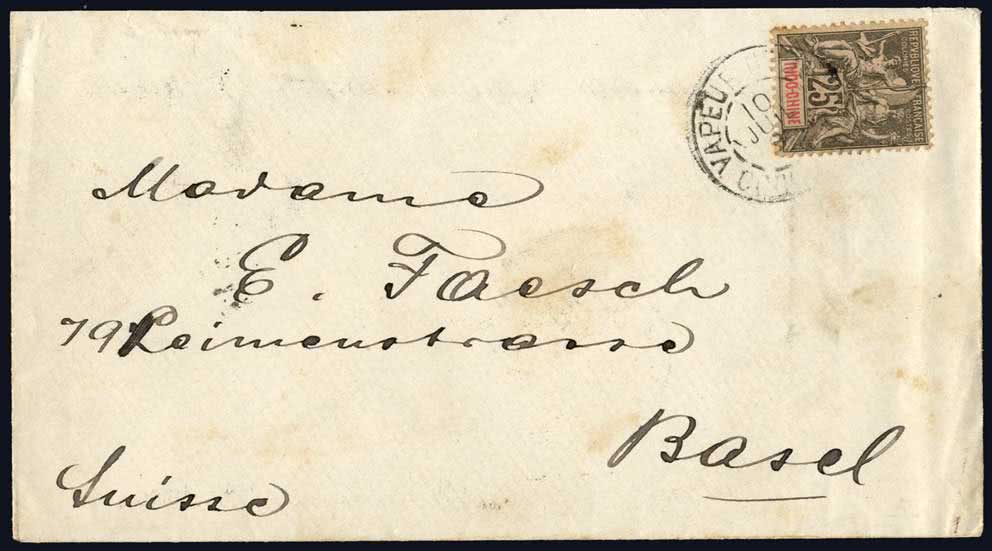 Madame
E. Faesch
79 Leimenstrasse
Basel
Suisse
REPUBLIQUE FRANCAISE
COLONIES
POSTES
INDO-CHINE
25
VAPEUR
10
JU